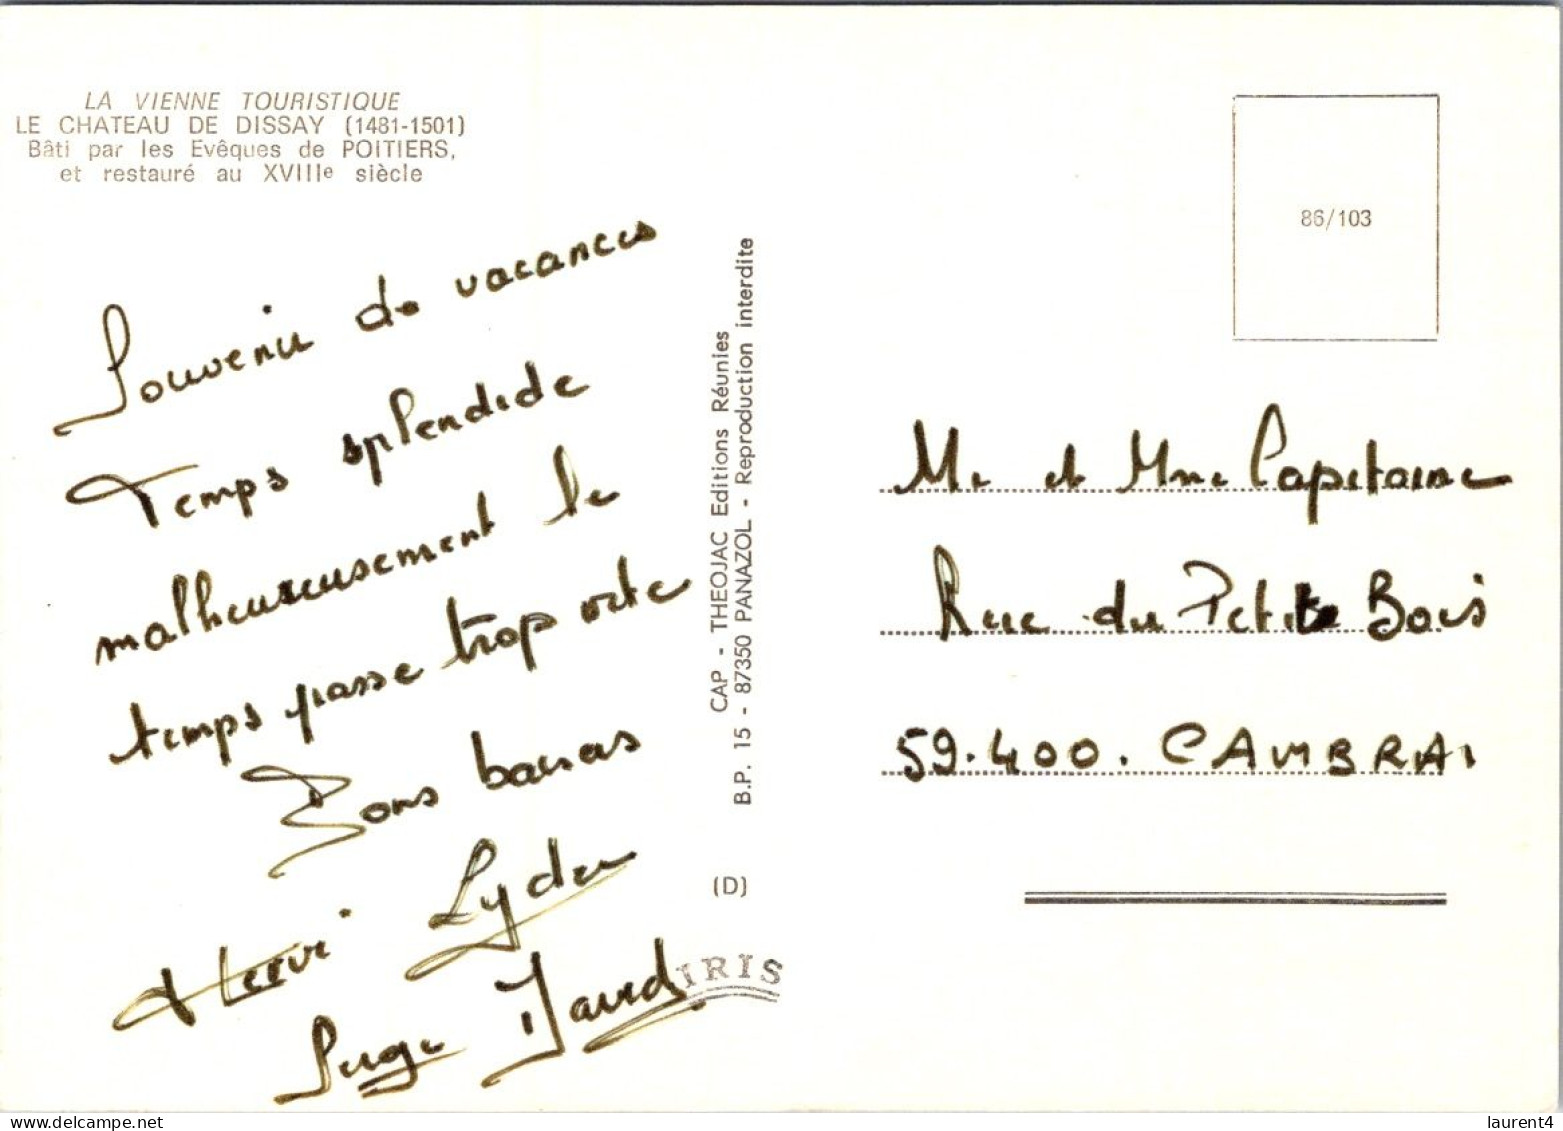 LA VIENNE TOURISTIQUE
LE CHATEAU DE DISSAY (1481-1501)
Bâti par les Evêques de POITIERS,
et restauré au XVIIIe siècle
Souvenir de vacances
Temps splendide
malheureusement le
temps passe trop vite
Bons baisers
Hervé Lydie
Serge
CAP - THEOJAC Editions Réunies
B.P. 15 - 87350 PANAZOL - Reproduction interdite
(D)
IRIS
86/103
Mr et Mme Capitaine
Rue du Petit Bois
59.400. CAMBRAI
delcampe.net
laurent4